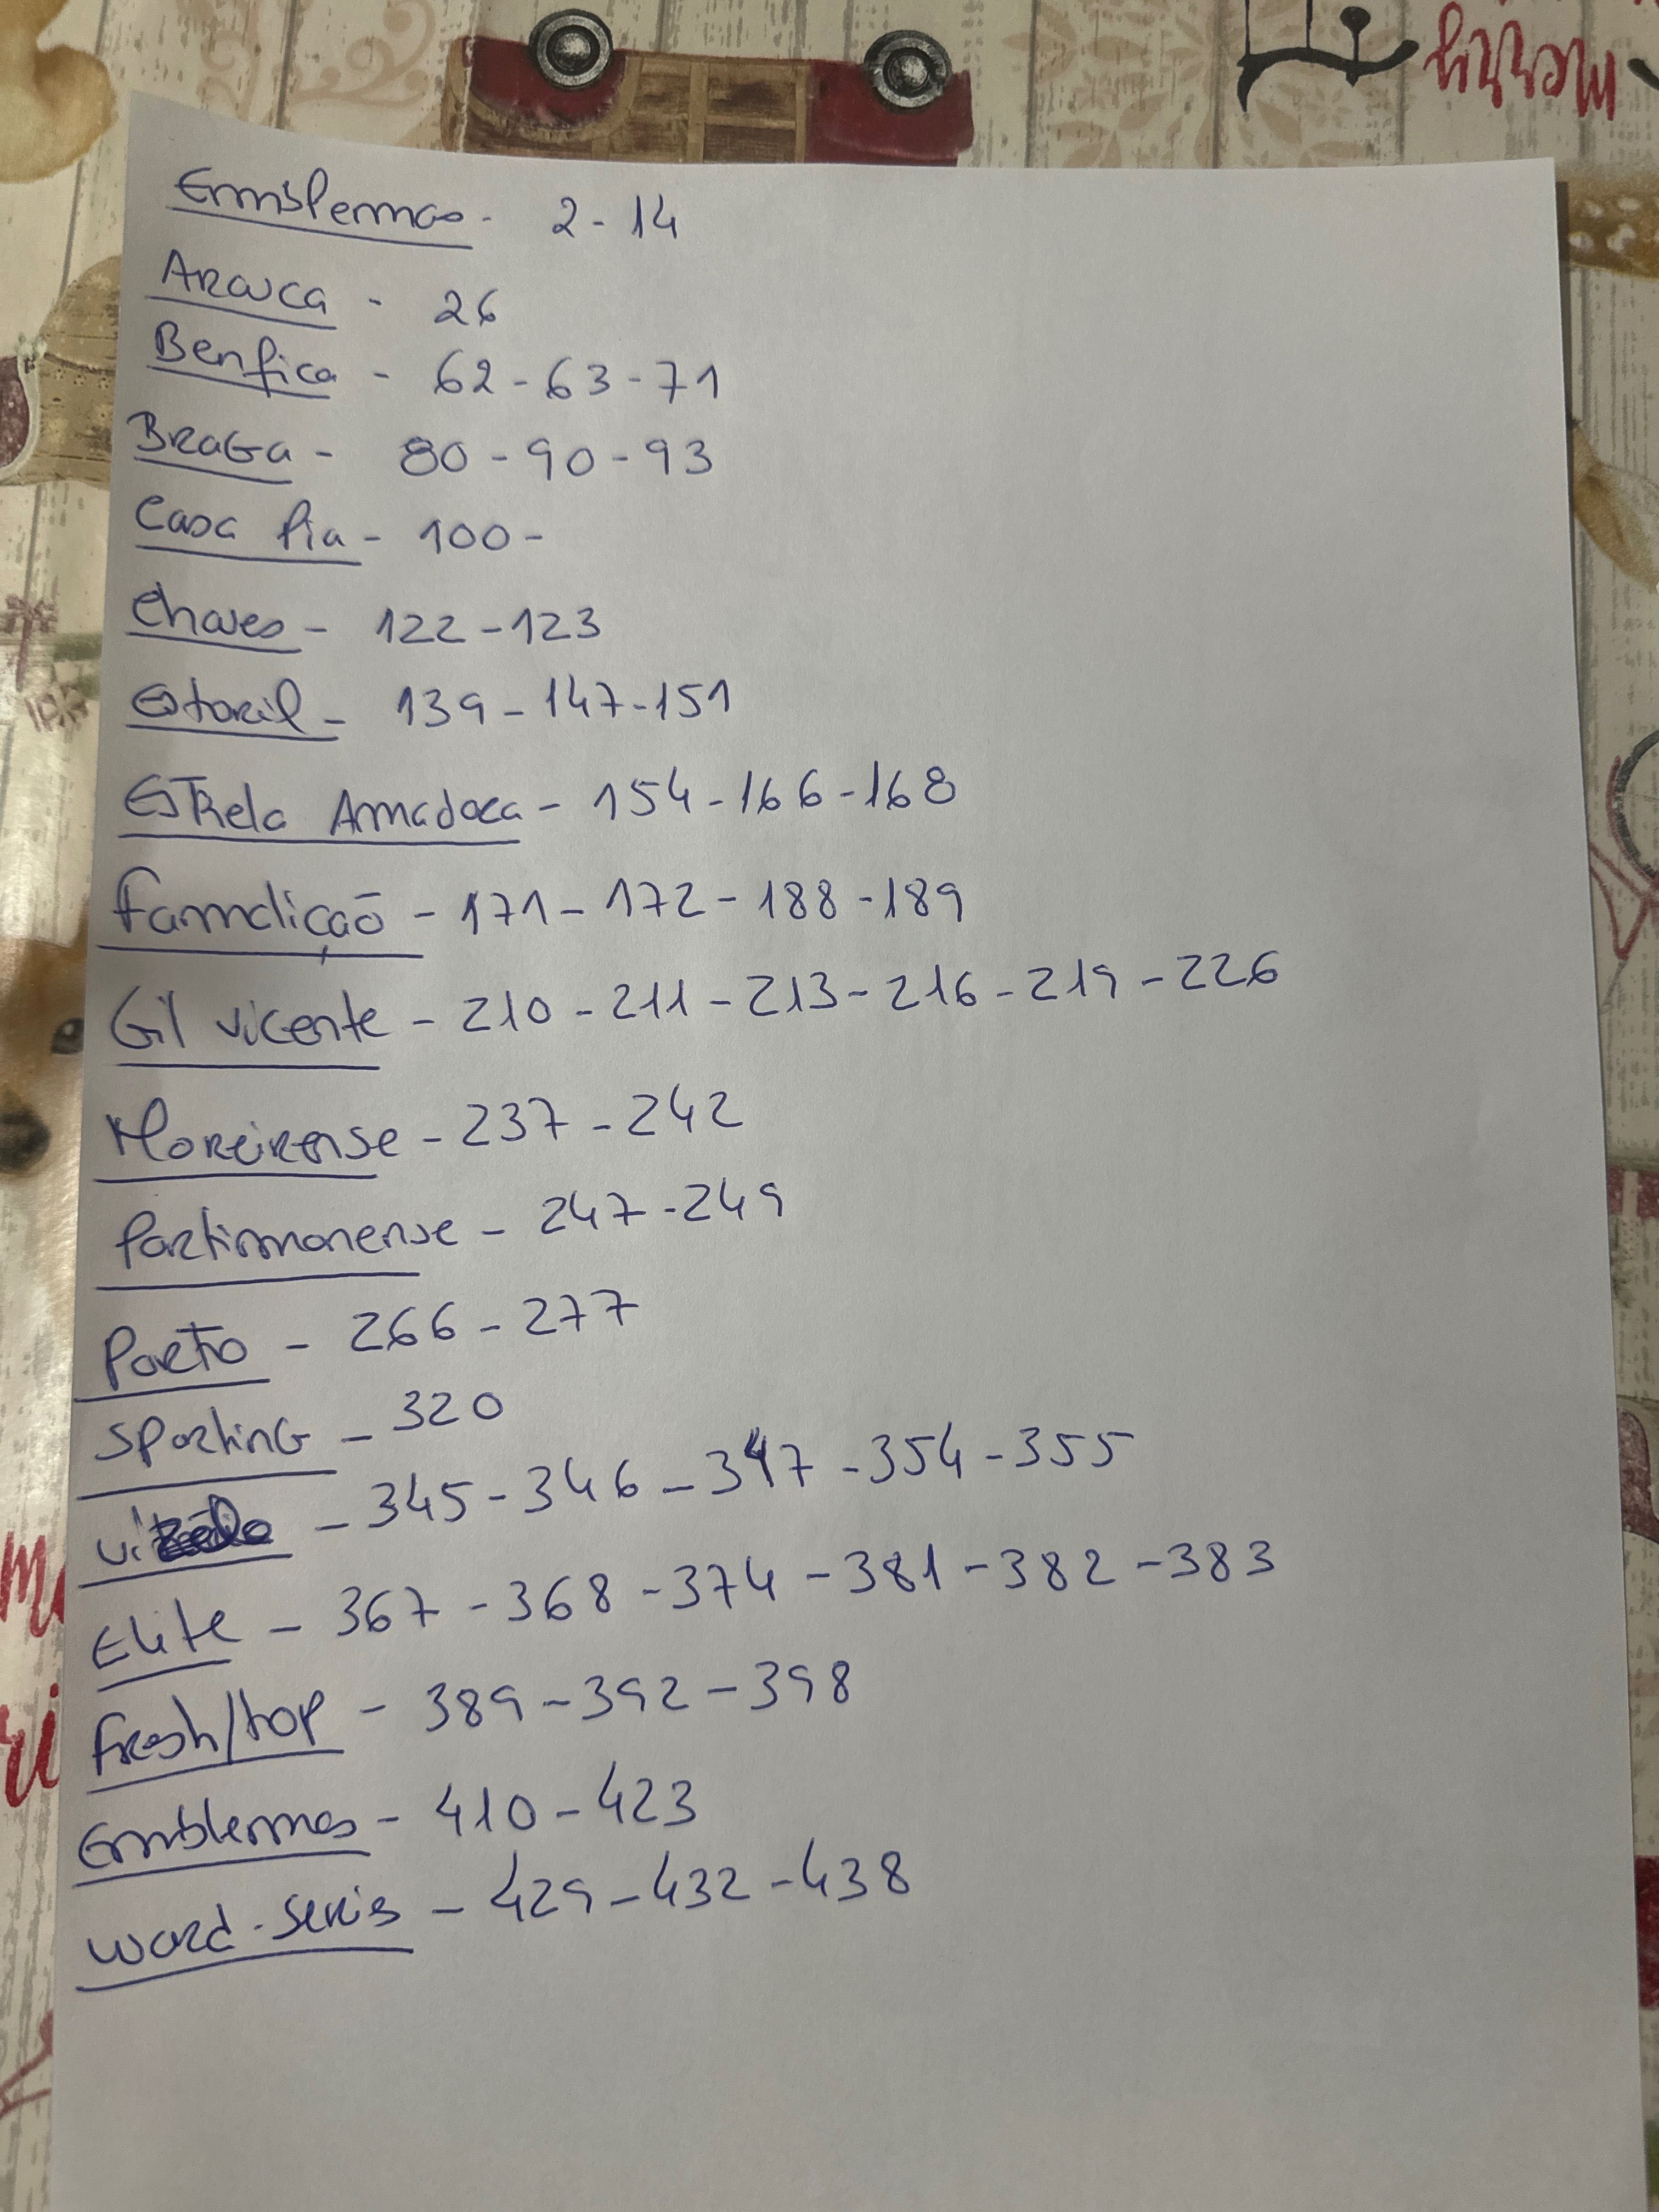 Merry
Emblemas - 2 - 14
Arouca - 26
Benfica - 62 - 63 - 71
Braga - 80 - 90 - 93
Casa Pia - 100 -
Chaves - 122 - 123
Estoril - 139 - 147 - 151
Estrela Amadora - 154 - 166 - 168
Famalicão - 171 - 172 - 188 - 189
Gil vicente - 210 - 211 - 213 - 216 - 219 - 226
Moreirense - 237 - 242
Portimonense - 247 - 249
Porto - 266 - 277
Sporting - 320
- 345 - 346 - 347 - 354 - 355
Elite - 367 - 368 - 374 - 381 - 382 - 383
Fresh/top - 389 - 392 - 398
Emblemas - 410 - 423
Word-Series - 429 - 432 - 438